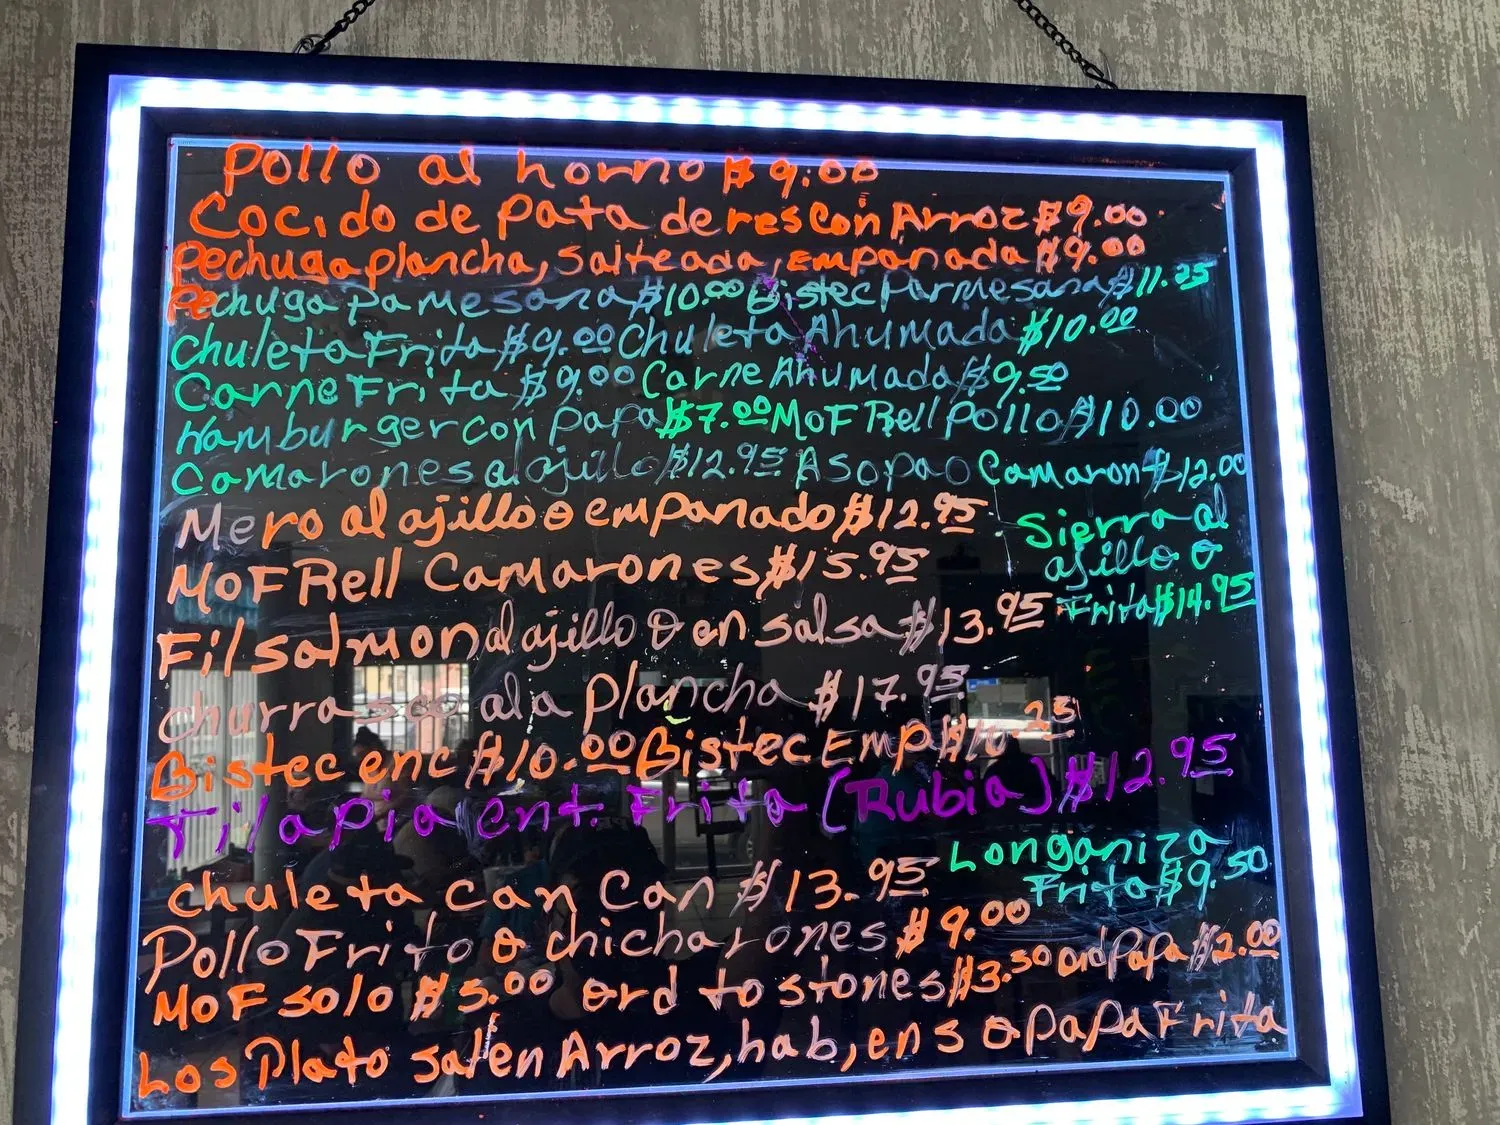 Pollo al horno $9.00
Cocido de Pata de res con Arroz $9.00
Pechuga plancha, Salteada, Empanada $9.00
Pechuga Pamesana $10.00 Bistec Parmesana $11.25
Chuleta Frita $9.00 Chuleta Ahumada $10.00
Carne Frita $9.00 Carne Ahumada $9.50
Hamburger con papa $7.00 MoF Rell Pollo $10.00
Camarones al ajillo $12.95 Asopao Camaron $12.00
Mero al ajillo o empanado $12.95
Sierra al
ajillo o
Frita $14.95
MoF Rell Camarones $15.95
Fil salmon al ajillo o en salsa $13.95
churrasco a la Plancha $17.95
Bistec enc $10.00 Bistec Emp $10.25
Tilapia ent. Frita (Rubia) $12.95
Chuleta Can Can $13.95
Longaniza
Frita $9.50
Pollo Frito o chicharones $9.00
MoF solo $5.00 ord tostones $3.50 ord Papa $2.00
Los Plato salen Arroz, hab, ens o papa Frita